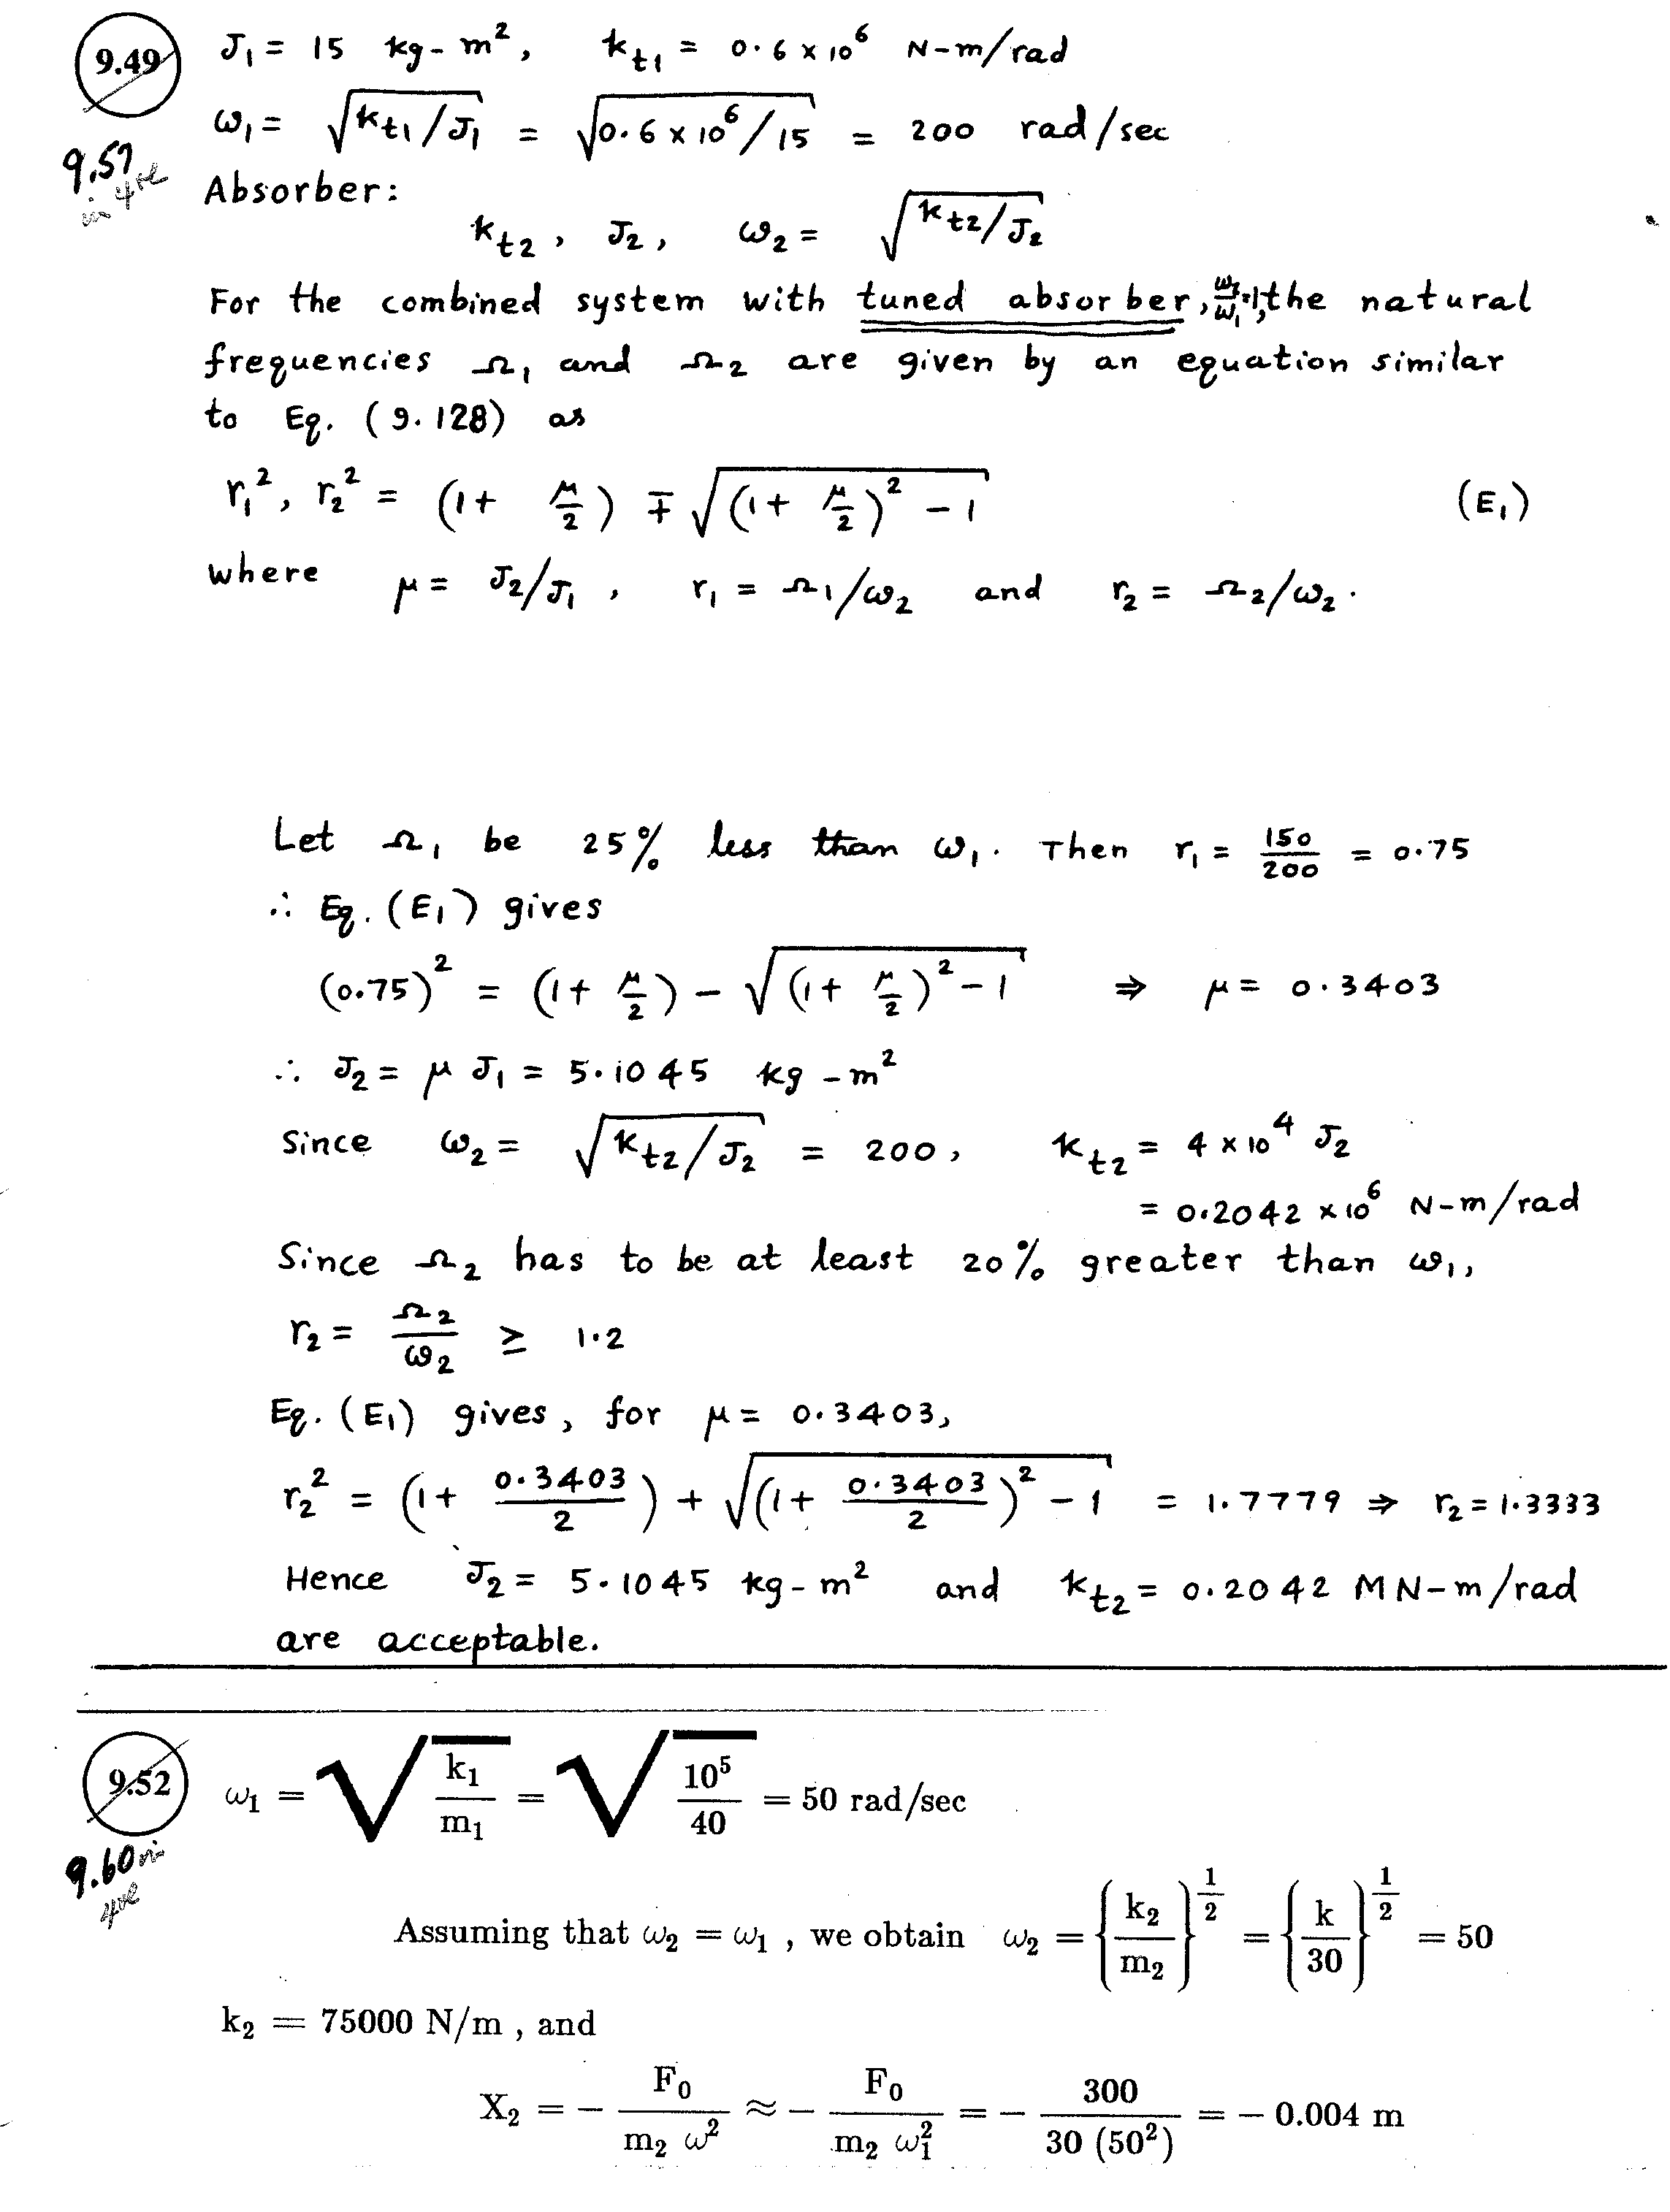 9.49
J₁ = 15 kg-m², k_t1 = 0.6 × 10⁶ N-m/rad
ω₁ = √(k_t1/J₁) = √(0.6 × 10⁶/15) = 200 rad/sec
9.57
in 4/e
Absorber:
k_t2, J₂, ω₂ = √(k_t2/J₂)
For the combined system with tuned absorber, ω₂/ω₁ = 1, the natural
frequencies Ω₁ and Ω₂ are given by an equation similar
to Eq. (9.128) as
r₁², r₂² = (1 + μ/2) ∓ √((1 + μ/2)² - 1) (E₁)
where μ = J₂/J₁, r₁ = Ω₁/ω₂ and r₂ = Ω₂/ω₂.
Let Ω₁ be 25% less than ω₁. Then r₁ = 150/200 = 0.75
∴ Eq. (E₁) gives
(0.75)² = (1 + μ/2) - √((1 + μ/2)² - 1) ⇒ μ = 0.3403
∴ J₂ = μ J₁ = 5.1045 kg-m²
Since ω₂ = √(k_t2/J₂) = 200, k_t2 = 4 × 10⁴ J₂
= 0.2042 × 10⁶ N-m/rad
Since Ω₂ has to be at least 20% greater than ω₁,
r₂ = Ω₂/ω₂ ≥ 1.2
Eq. (E₁) gives, for μ = 0.3403,
r₂² = (1 + 0.3403/2) + √((1 + 0.3403/2)² - 1) = 1.7779 ⇒ r₂ = 1.3333
Hence J₂ = 5.1045 kg-m² and k_t2 = 0.2042 MN-m/rad
are acceptable.
9.52
ω₁ = √(k₁/m₁) = √(10⁵/40) = 50 rad/sec
9.60 in
4/e
Assuming that ω₂ = ω₁ , we obtain ω₂ = {k₂/m₂}^(1/2) = {k/30}^(1/2) = 50
k₂ = 75000 N/m , and
X₂ = - F₀/(m₂ ω²) ≈ - F₀/(m₂ ω₁²) = - 300/(30 (50²)) = - 0.004 m